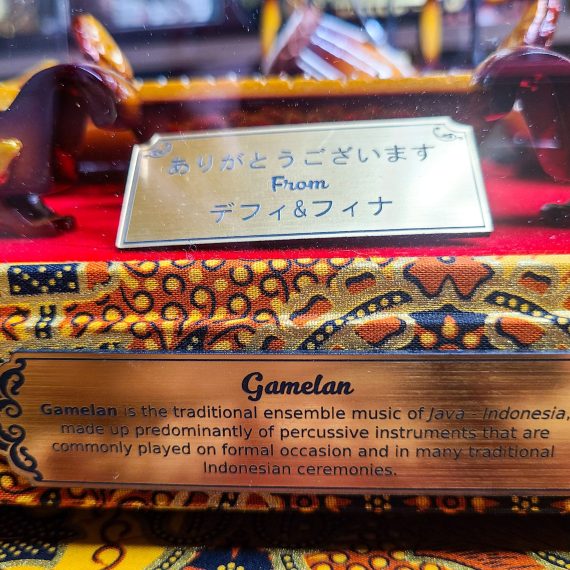 ありがとうございます
From
デフィ&フィナ
Gamelan
Gamelan is the traditional ensemble music of Java - Indonesia,
made up predominantly of percussive instruments that are
commonly played on formal occasion and in many traditional
Indonesian ceremonies.